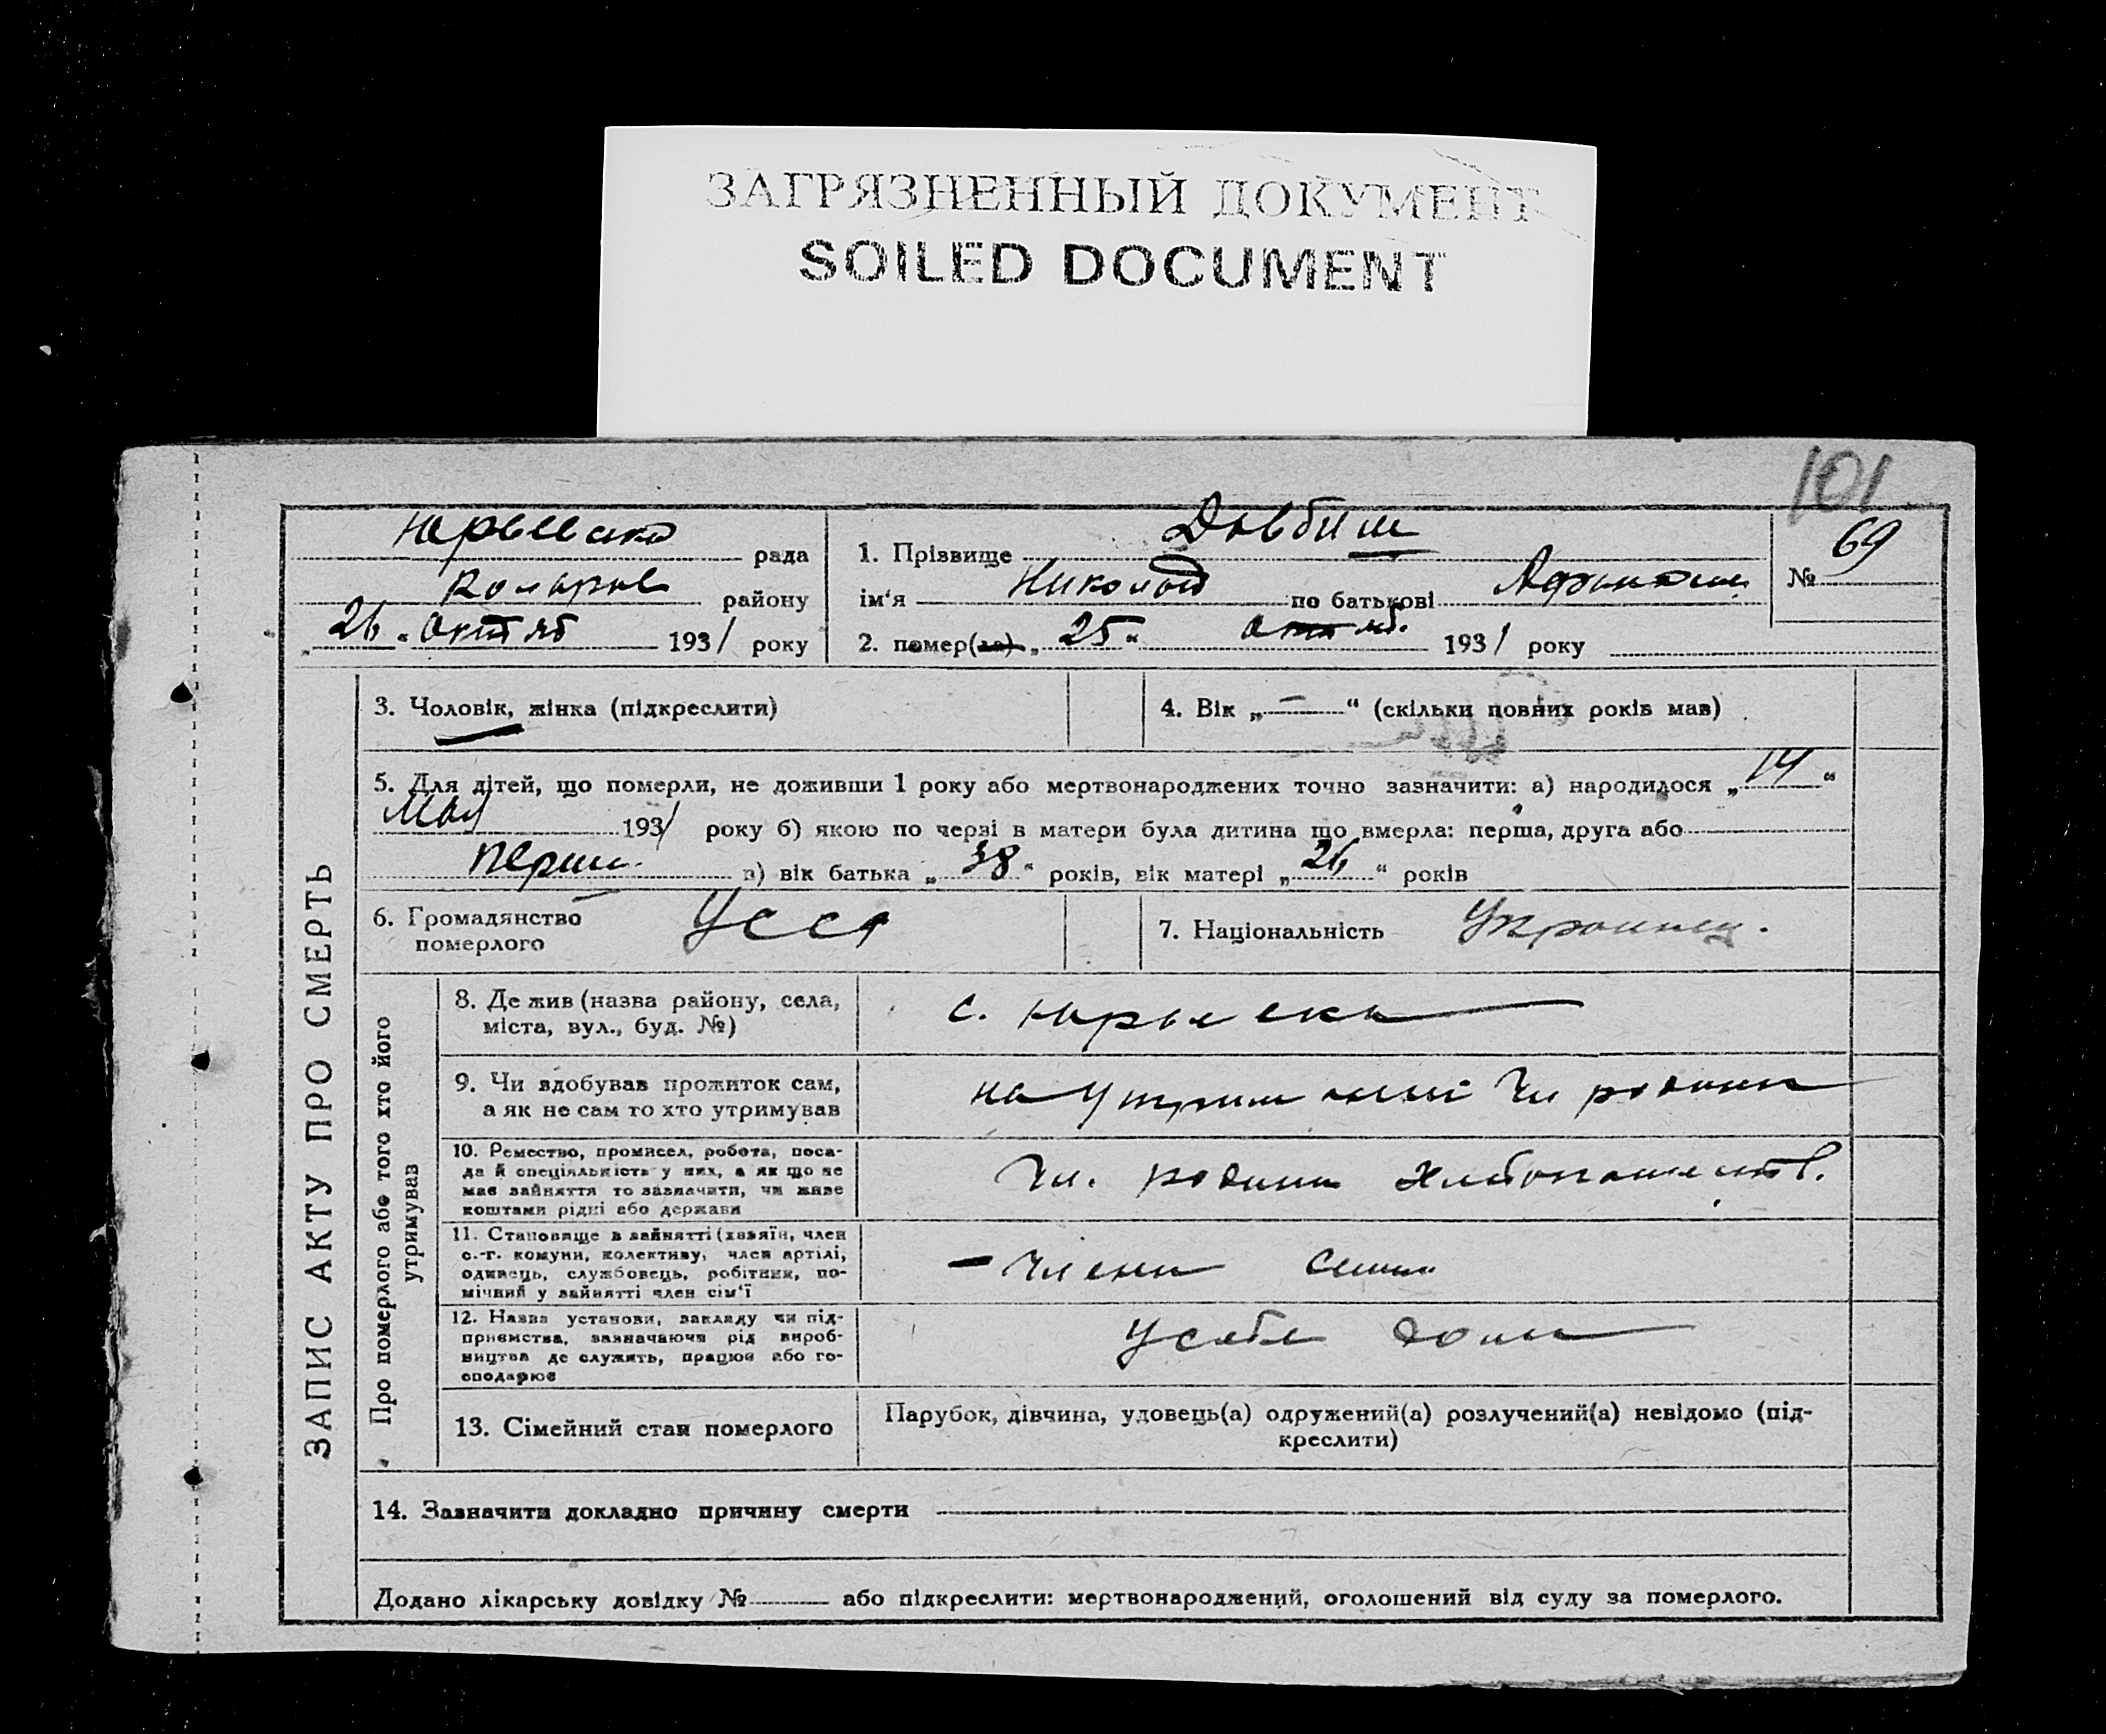 ЗАГРЯЗНЕННЫЙ ДОКУМЕНТ
SOILED DOCUMENT
101
рада
району
26 " октяб 1931 року
1. Прізвище Довбиш
ім'я Николай по батькові
2. помер(ла) „ 25 " октяб. 1931 року
№ 69
ЗАПИС АКТУ ПРО СМЕРТЬ
3. Чоловік, жінка (підкреслити)
4. Вік „ — " (скільки повних років мав)
5. Для дітей, що померли, не доживши 1 року або мертвонароджених точно зазначити: а) народилося „ 14 "
Мая 1931 року б) якою по черзі в матери була дитина що вмерла: перша, друга або
перш. в) вік батька „ 38 " років, вік матері „ 26 " років
6. Громадянство
померлого
7. Національність Украинец.
Про померлого або того хто його
утримував
8. Де жив (назва району, села,
міста, вул., буд. №)
с.
9. Чи здобував прожиток сам,
а як не сам то хто утримував
на утриманні чл родини
10. Ремество, промисел, робота, поса-
да й спеціяльність у них, а як що не
має зайняття то зазначити, чи живе
коштами рідні або держави
Чл. родини
11. Становище в зайнятті (хазяїн, член
с.-г. комуни, колективу, член артілі,
одинець, службовець, робітник, по-
мічний у зайнятті член сім'ї
— Члени семьи
12. Назва установи, закладу чи під-
приємства, зазначаючи рід вироб-
ництва де служить, працює або го-
сподарює
У себе дома
13. Сімейний стан померлого
Парубок, дівчина, удовець(а) одружений(а) розлучений(а) невідомо (під-
креслити)
14. Зазначити докладно причину смерти
Додано лікарську довідку № або підкреслити: мертвонароджений, оголошений від суду за померлого.